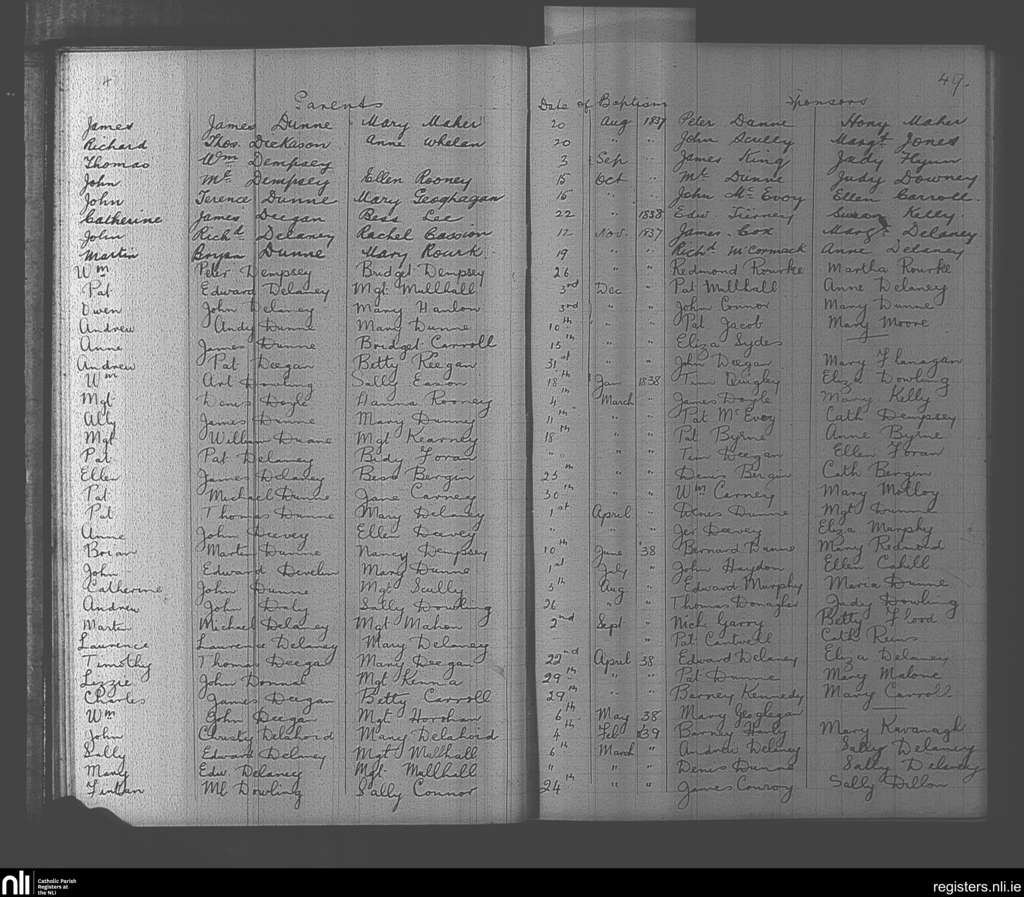 49.
Parents Date of Baptism Sponsors
James James Dunne Mary Maher 20 Aug 1837 Peter Dunne Hony Maher
Richard Thos. Dickason Anne Whelan 20 " " John Scully Margt Jones
Thomas Wm Dempsey 3 Sep " James King Judy Flynn
John Ml. Dempsey Ellen Rooney 15 Oct " Ml. Dunne Judy Downey
John Terence Dunne Mary Geoghagan 15 " " John Mc Evoy Ellen Carroll
Catherine James Deegan Bess Lee 22 " 1838 Edw. Tierney Susan Kelly
John Richd Delaney Rachel Cassion 12 Nov. 1837 James Cox Margt Delaney
Martin Bryan Dunne Mary Rourk 19 " " Richd McCormack Anne Delaney
Wm Peter Dempsey Bridget Dempsey 26 " " Redmond Rourke Martha Rourke
Pat Edward Delaney Mgt. Mullhall 3rd Dec " Pat Mullhall Anne Delaney
Owen John Delaney Mary Hanlon 3rd " " John Connor Mary Dunne
Andrew Andy Dunne Mary Dunne 10th " " Pat Jacob Mary Moore
Anne James Dunne Bridget Carroll 15th " " Eliza Sydes
Andrew Pat Deegan Betty Keegan 31st " " John Deegan Mary Flanagan
Wm Art Dowling Sally Eason 18th Jan 1838 Tim Quigley Eliza Dowling
Mgt Denis Doyle Hanna Rooney 4 March " James Doyle Mary Kelly
Ally James Dunne Mary Dunny 11th " " Pat McEvoy Cath Dempsey
Mgt William Duane Mgt Kearney 18th " " Pat Byrne Anne Byrne
Pat Pat Delaney Bidy Foran " " " Tim Deegan Ellen Foran
Ellen James Delaney Bess Bergin 25th " " Denis Bergin Cath Bergin
Pat Michael Dunne Jane Carney 30th " " Wm Carney Mary Molloy
Pat Thomas Dunne Mary Delaney 1st April " Dunne Mgt Dunne
Anne John Deevey Ellen Deevey " " Jer Deevey Eliza Murphy
Brian Martin Dunne Nancy Dempsey 10th June '38 Bernard Dunne Mary Redmond
John Edward Devlin Mary Dunne 1st July " John Haydon Ellen Cahill
Catherine John Dunne Mgt Scully 5th Aug " Edward Murphy Maria Dunne
Andrew John Daly Sally Dowling 26 " " Thomas Donagher Judy Dowling
Martin Michael Delaney Mgt Mahon 2nd Sept " Nick Garry Betty Flood
Laurence Laurence Delaney Mary Delaney " " Pat Cantwell Cath
Timothy Thomas Deegan Mary Deegan 22nd April 38 Edward Delaney Eliza Delaney
Lizzie John Mgt Kenna 29th " " Pat Dunne Mary Malone
Charles James Deegan Betty Carroll 29th " " Barney Kennedy Mary Carroll
Wm John Deegan Mgt Horohan 6th May 38 Mary Geoghegan
John Christy Delahoid Mary Delahoid 4th Feb 1839 Barney Mary Kavanagh
Sally Edward Delaney Mgt Mullhall 6th March " Andrew Delaney Sally Delaney
Mary Edw. Delaney Mgt. Mullhall " " " Denis Dunne Sally Delaney
Fintan Ml Dowling Sally Connor 24th " " James Conroy Sally Dillon
nli Catholic Parish Registers at the NLI
registers.nli.ie